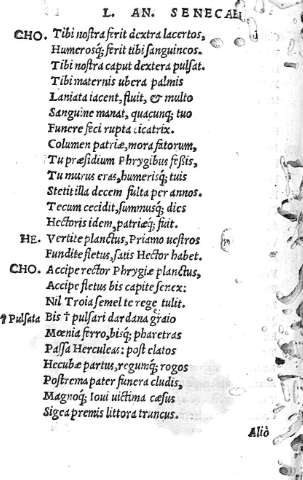 L. AN. SENECAE
CHO. Tibi nostra ferit dextra lacertos,
Humerosq; ferit tibi sanguineos.
Tibi nostra caput dextera pulsat.
Tibi maternis ubera palmis
Laniata iacent, fluit, & multo
Sanguine manat, quacunq; tuo
Funere feci rupta cicatrix.
Columen patriæ, mora fatorum,
Tu præsidium Phrygibus fessis,
Tu murus eras, humerisq; tuis
Stetit illa decem fulta per annos.
Tecum cecidit, summusq; dies
Hectoris idem, patriæq; fuit.
HE. Vertite planctus, Priamo uestros
Fundite fletus, satis Hector habet.
CHO. Accipe rector Phrygiæ planctus,
Accipe fletus bis capite senex:
Nil Troia semel te rege tulit.
† Pulsata Bis † pulsari dardana graio
Mœnia ferro, bisq; pharetras
Passa Herculeas: post elatos
Hecubæ partus, regumq; rogos
Postrema pater funera cludis,
Magnoq; Ioui uictima cæsus
Sigea premis littora truncus.
Aliò